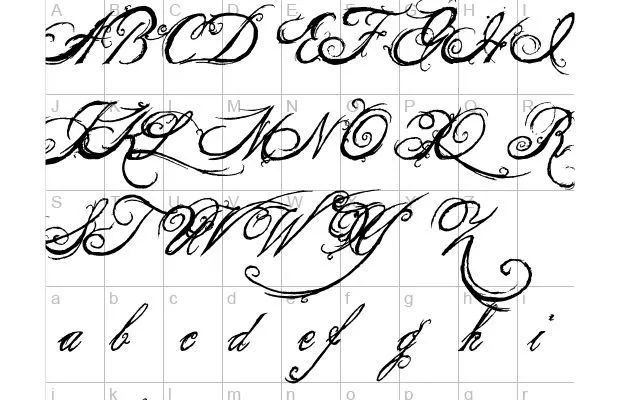 A B C D E F G H I
A B C D E F G H I
J K L M N O P Q R
J K L M N O Q R
S T U V W X Y Z
S T U V W X Y Z
a b c d e f g h i
a b c d e f g h i
j k l m n o p q r